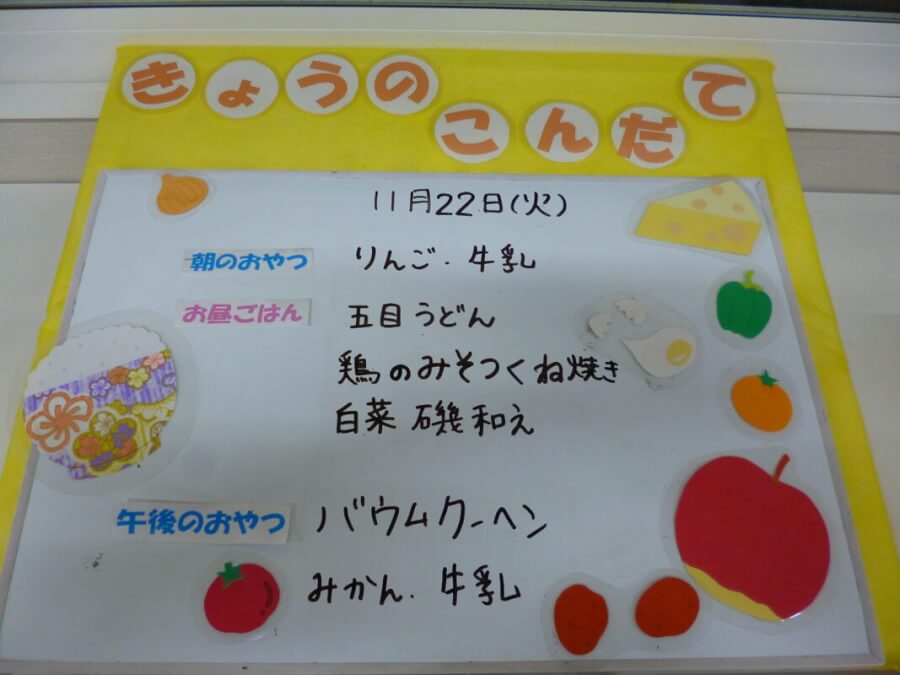 きょうの
こんだて
11月22日(火)
朝のおやつ りんご.牛乳
お昼ごはん 五目うどん
鶏のみそつくね焼き
白菜 磯和え
午後のおやつ バウムクーヘン
みかん.牛乳